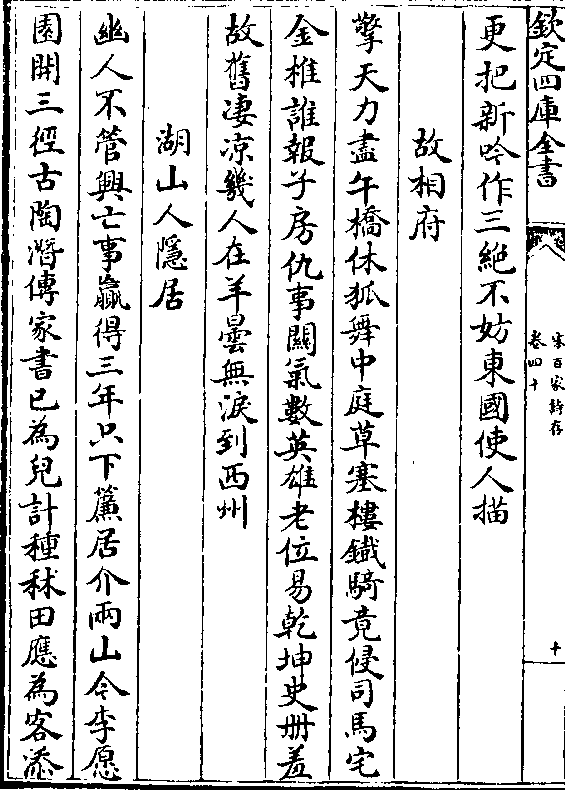 欽定四庫全書
宋百家詩存
卷四十
十
更把新吟作三絶不妨東國使人描
故相府
擎天力盡午橋休狐舞中庭草塞樓鐵騎竟侵司馬宅
金椎誰報子房仇事關氣數英雄老位易乾坤史册羞
故舊凄凉幾人在羊曇無淚到西州
湖山人隱居
幽人不管興亡事贏得三年只下簾居介兩山今李愿
園開三徑古陶潛傳家書已為兒計種秫田應為客添